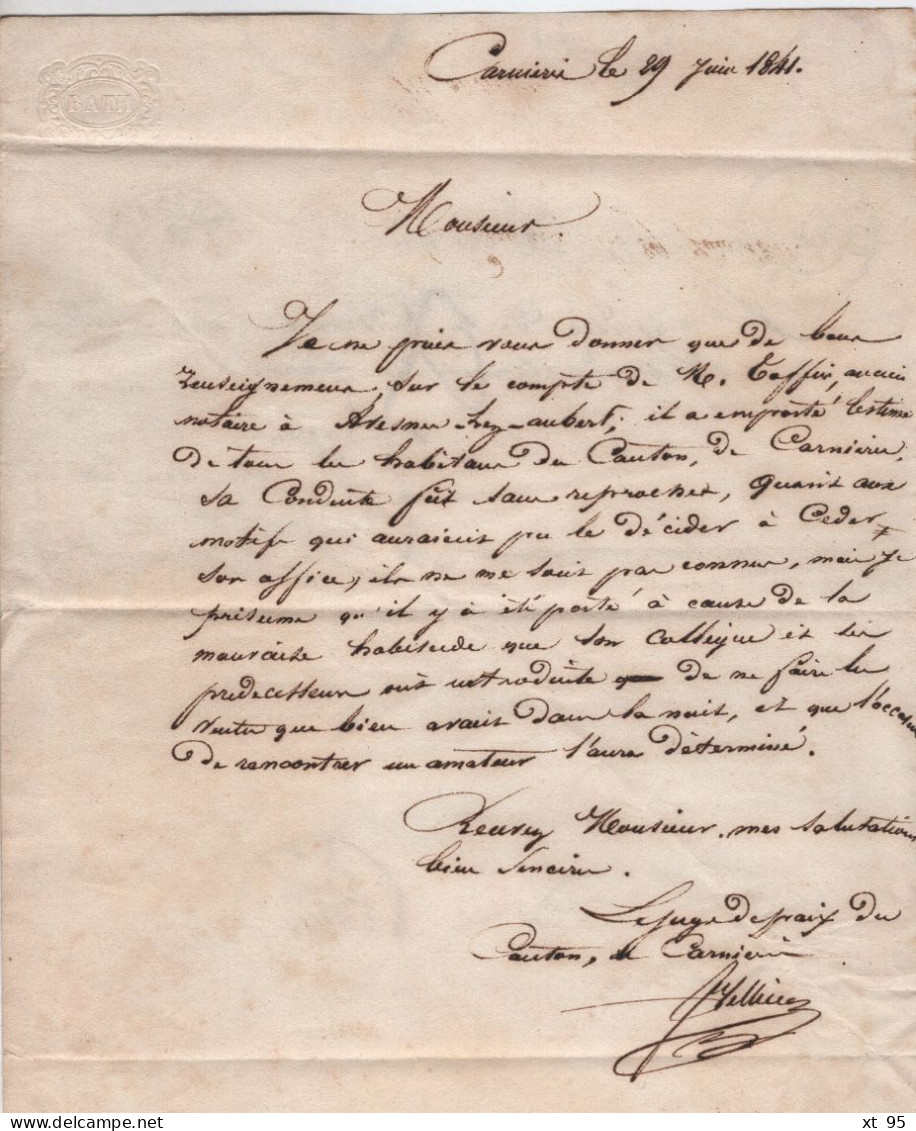 BATH
Carnieres le 29 Juin 1841.
Monsieur
Je ne puis vous donner que de bons
renseignemens, sur le compte de M. Taffin, ancien
notaire à Avesnes-lez-aubert; il a emporté l'estime
de tous les habitans du Canton, de Carnieres,
sa Conduite fut sans reproches, quant aux
motifs qui auraient pu le décider à Ceder
son office, ils ne me sont pas connus, mais je
présume qu'il y à été porté à cause de la
mauvaise habitude que son Collègue et ses
predecesseurs ont introduite de ne faire les
ventes que bien avant dans la nuit, et que l'occasion
de rencontrer un amateur l'aura déterminé.
Recevez Monsieur, mes salutations
bien sincères.
Le Juge de paix du
Canton, de Carnieres
xt 95